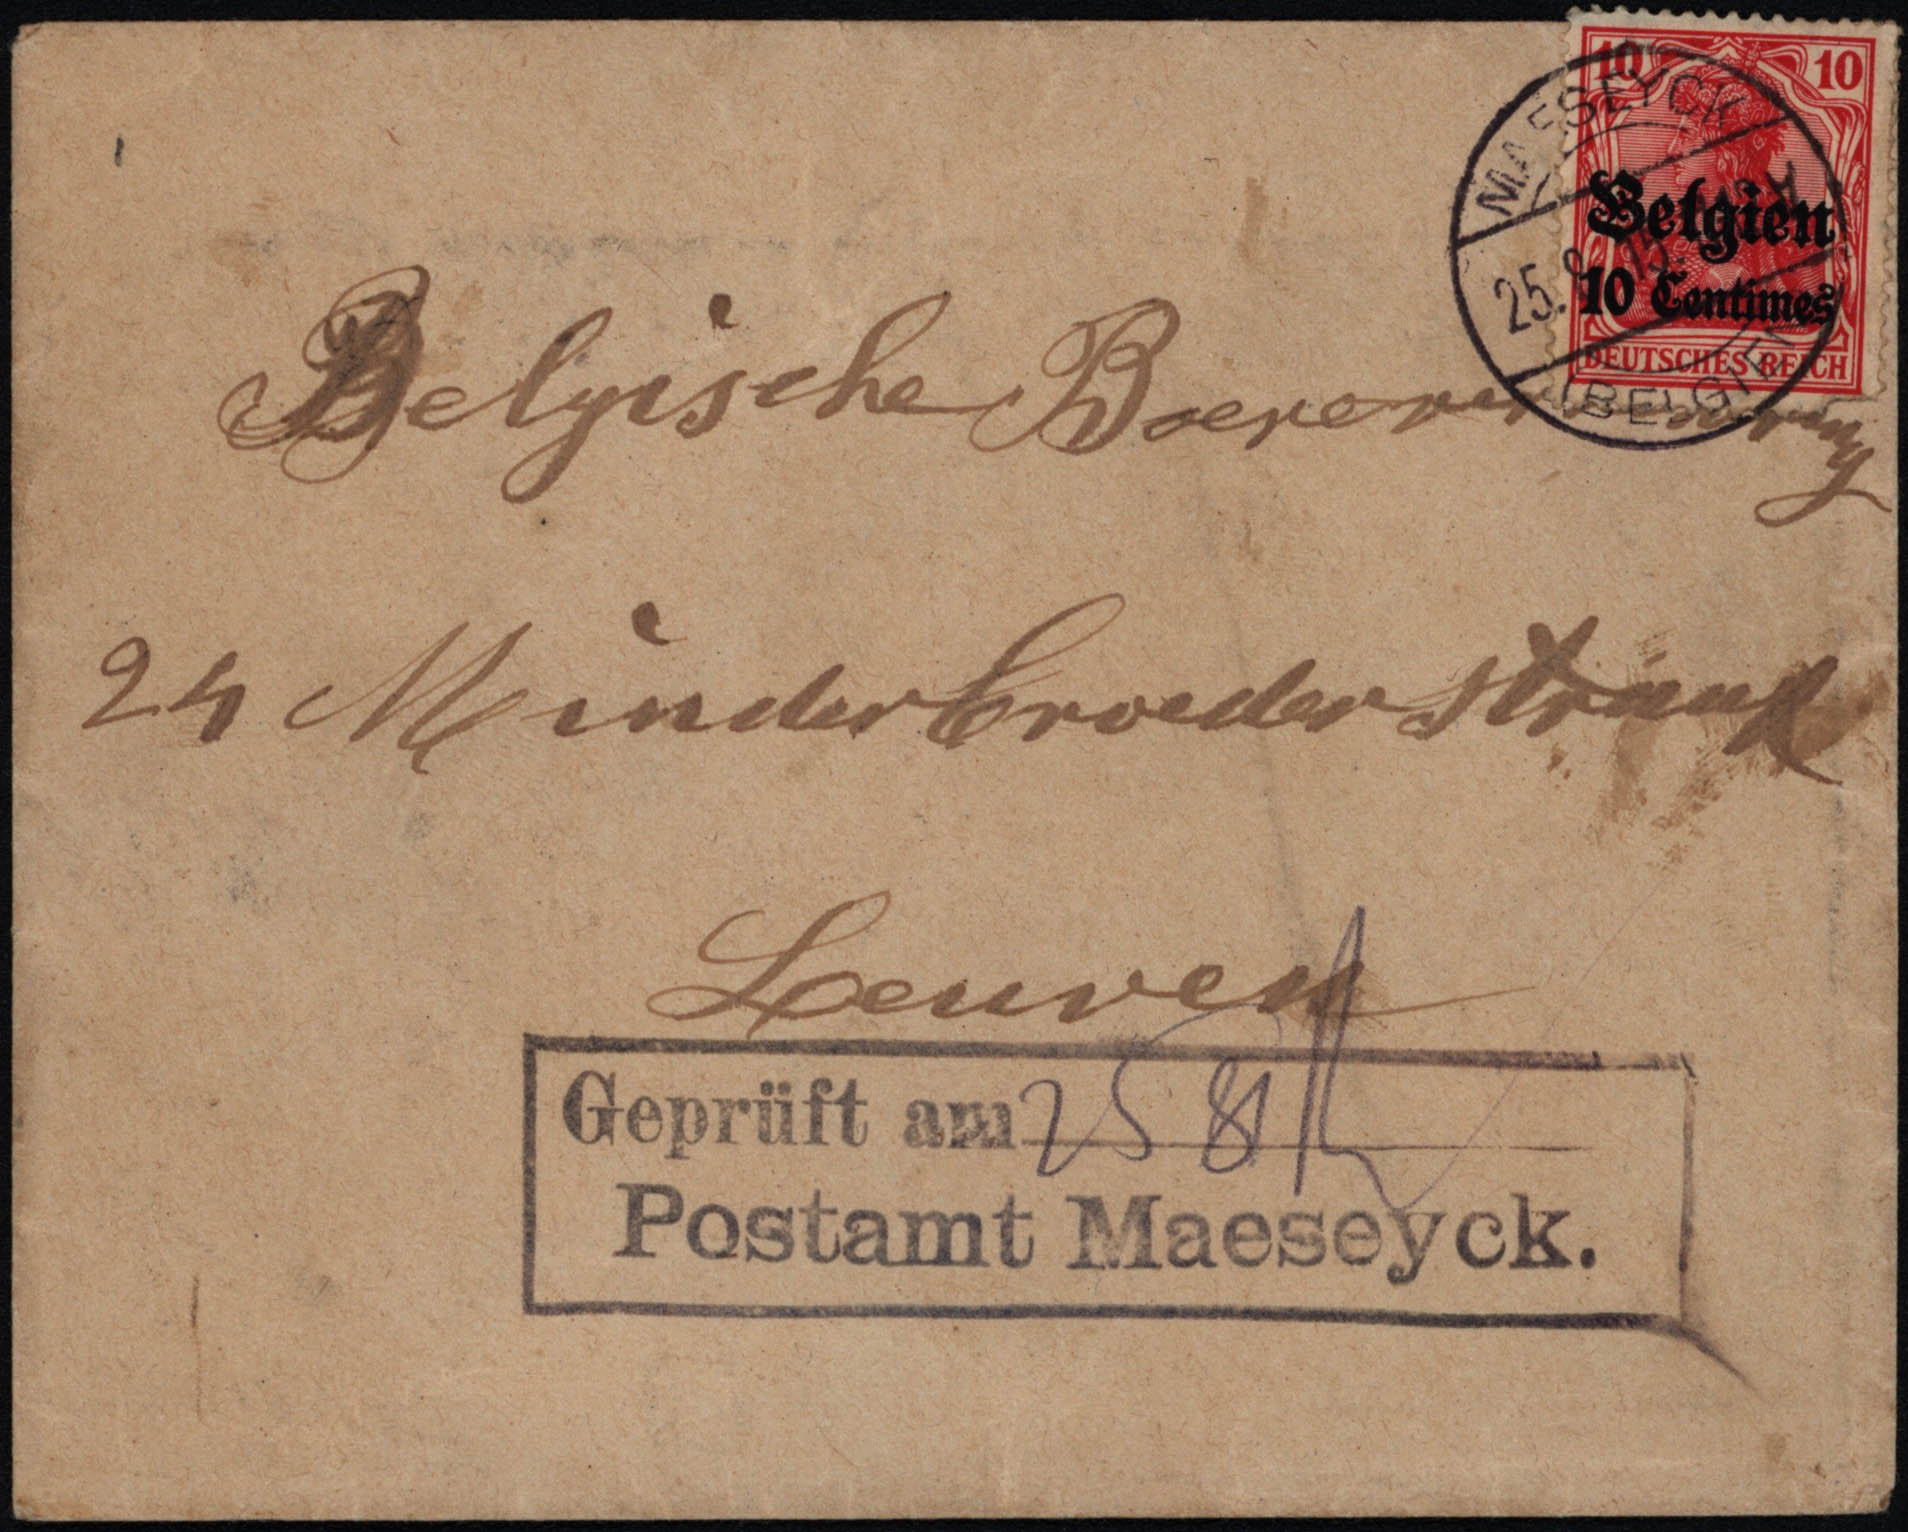 10 10
MAESEYCK
Belgien
25. 8. 15.
10 Centimes
DEUTSCHES REICH
(BELGIEN)
Belgische Boerenvereeniging
24 Minderbroederstraat
Leuven
Geprüft am 25 8
Postamt Maeseyck.